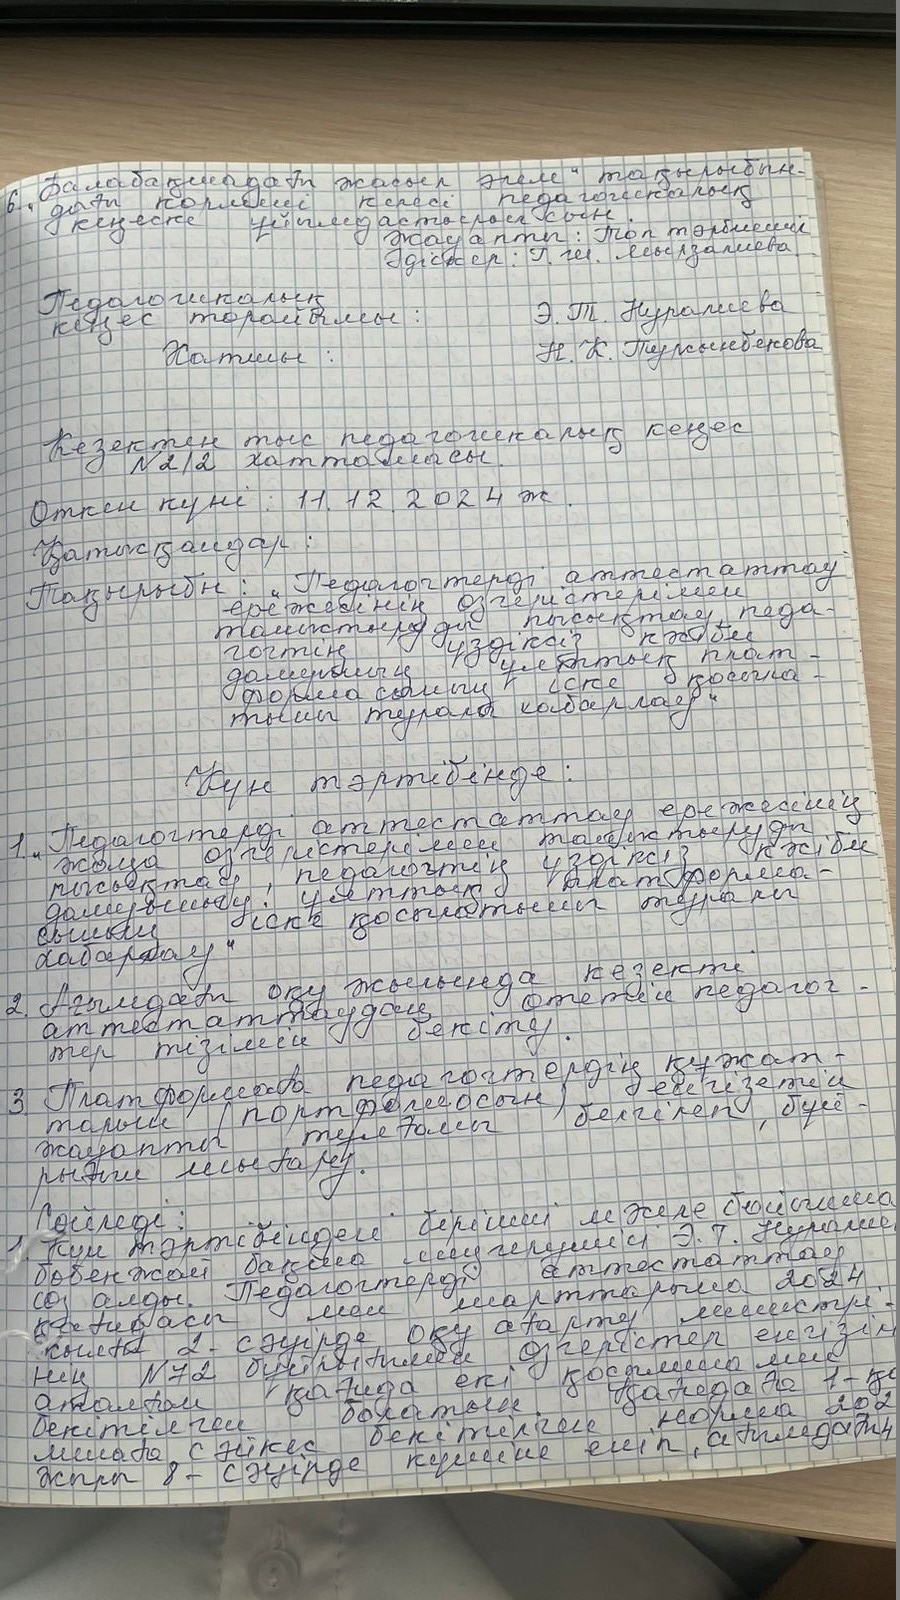 6. „Балабақшадағы жасыл әлем" тақырыбын-
дағы көрмені келесі педагогикалық
кеңеске ұйымдастырылсын.
Жауапты: Топ тәрбиешілі
Әдіскер: Г. Ш. Мырзалиева
Педагогикалық
кеңес төрайымы: Э. Т. Нуралиева
Хатшы: Н. К. Турсынбекова
Кезектен тыс педагогикалық кеңес
N2/2 хаттамасы.
Өткен күні: 11.12.2024 ж.
Қатысқандар:
Тақырыбы: „Педагогтерді аттестаттау
ережесінің өзгерістерімен
таныстыруды пысықтау, педа-
гогтің үздіксіз кәсіби
дамуының ұлттық плат-
формасының іске қосыла-
тыны туралы хабарлау"
Күн тәртібінде:
1. „Педагогтерді аттестаттау ережесінің
жаңа өзгерістерімен таныстыруды
пысықтау, педагогтің үздіксіз кәсіби
дамуының ұлттық платформа-
сының іске қосылатыны туралы
хабарлау"
2. Ағымдағы оқу жылында кезекті
аттестаттаудан өтетін педагог-
тер тізімін бекіту.
3 Платформаға педагогтердің құжат-
тарын (портфолиосын) енгізетін
жауапты тұлғаны белгілеп, бұй-
рығын шығару.
Сөйледі:
1. Күн тәртібіндегі бірінші мәселе бойынша
бөбекжай бақша меңгерушісі Э. Т. Нуралие
сөз алды. Педагогтерді аттестаттау
қағидасы мен шарттарына 2024
жылғы 2-сәуірде оқу ағарту министрі-
нің N72 бұйрығымен өзгерістер енгізіл
аталған қағида екі қосымшамен
бекітілген болатын. Қағидаға 1-қо
мшаға сәйкес бекітілген норма 202
жылы 8-сәуірде күшіне еніп, ағымдағы